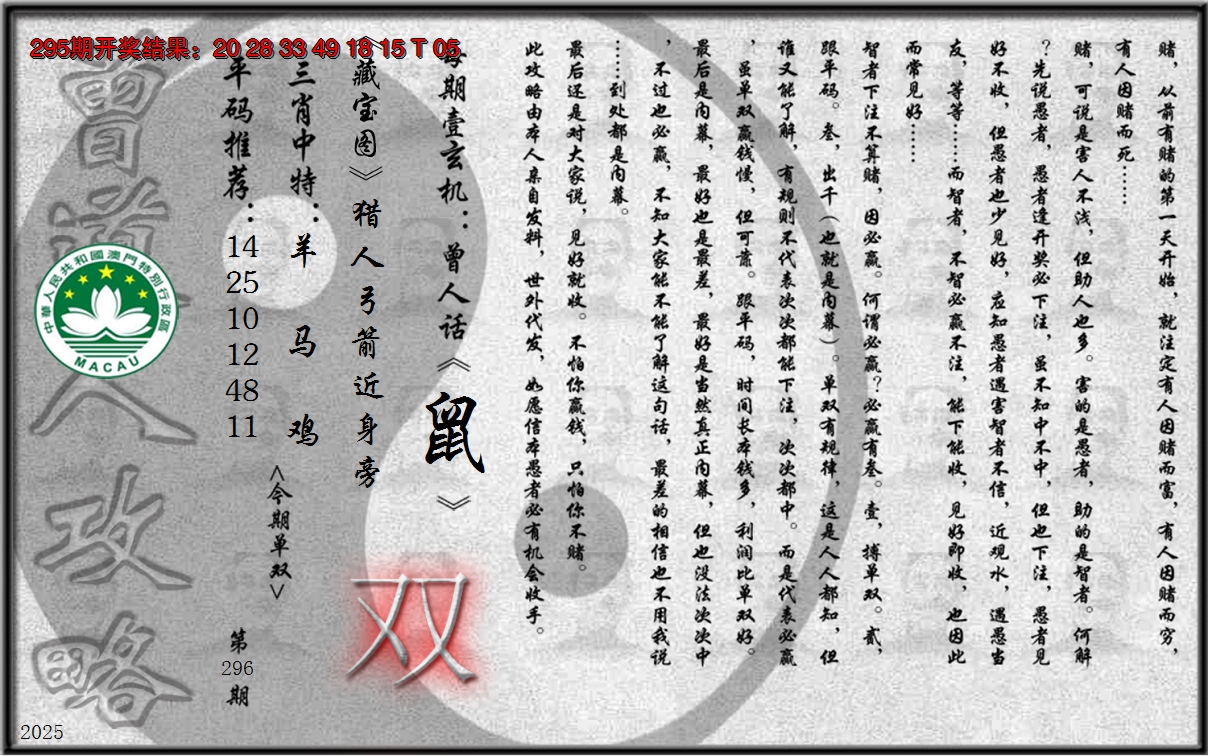 295期开奖结果：20 28 33 49 18 15 T 05
赌，从前有赌的第一天开始，就注定有人因赌而富，有人因赌而穷，
有人因赌而死……
赌，可说是害人不浅，但助人也多。害的是愚者，助的是智者。何解
？先说愚者，愚者逢开奖必下注，虽不知中不中，但也下注，愚者见
好不收，但愚者也少见好，应知愚者遇害智者不信，近观水，遇愚当
友，等等……而智者，不智必赢不注，能下能收，见好即收，也因此
而常见好……
智者下注不算赌，因必赢。何谓必赢？必赢有叁。壹，搏单双。贰，
跟平码。叁，出千（也就是内幕）。单双有规律，这是人人都知，但
谁又能了解，有规则不代表次次都能下注，次次都中。而是代表必赢
，虽单双赢钱慢，但可靠。跟平码，时间长本钱多，利润比单双好。
最后是内幕，最好也是最差，最好是当然真正内幕，但也没法次次中
，不过也必赢，不知大家能不能了解这句话，最差的相信也不用我说
……到处都是内幕。
最后还是对大家说，见好就收。不怕你赢钱，只怕你不赌。
此攻略由本人亲自发料，世外代发，如愿信本愚者必有机会收手。
每期壹玄机：曾人话《鼠》
《藏宝图》猎人弓箭近身旁
三肖中特：羊 马 鸡
平码推荐：14 25 10 12 48 11
<今期单双>
双
第
296
期
曾道人攻略
中華人民共和國澳門特別行政區
MACAU
2025